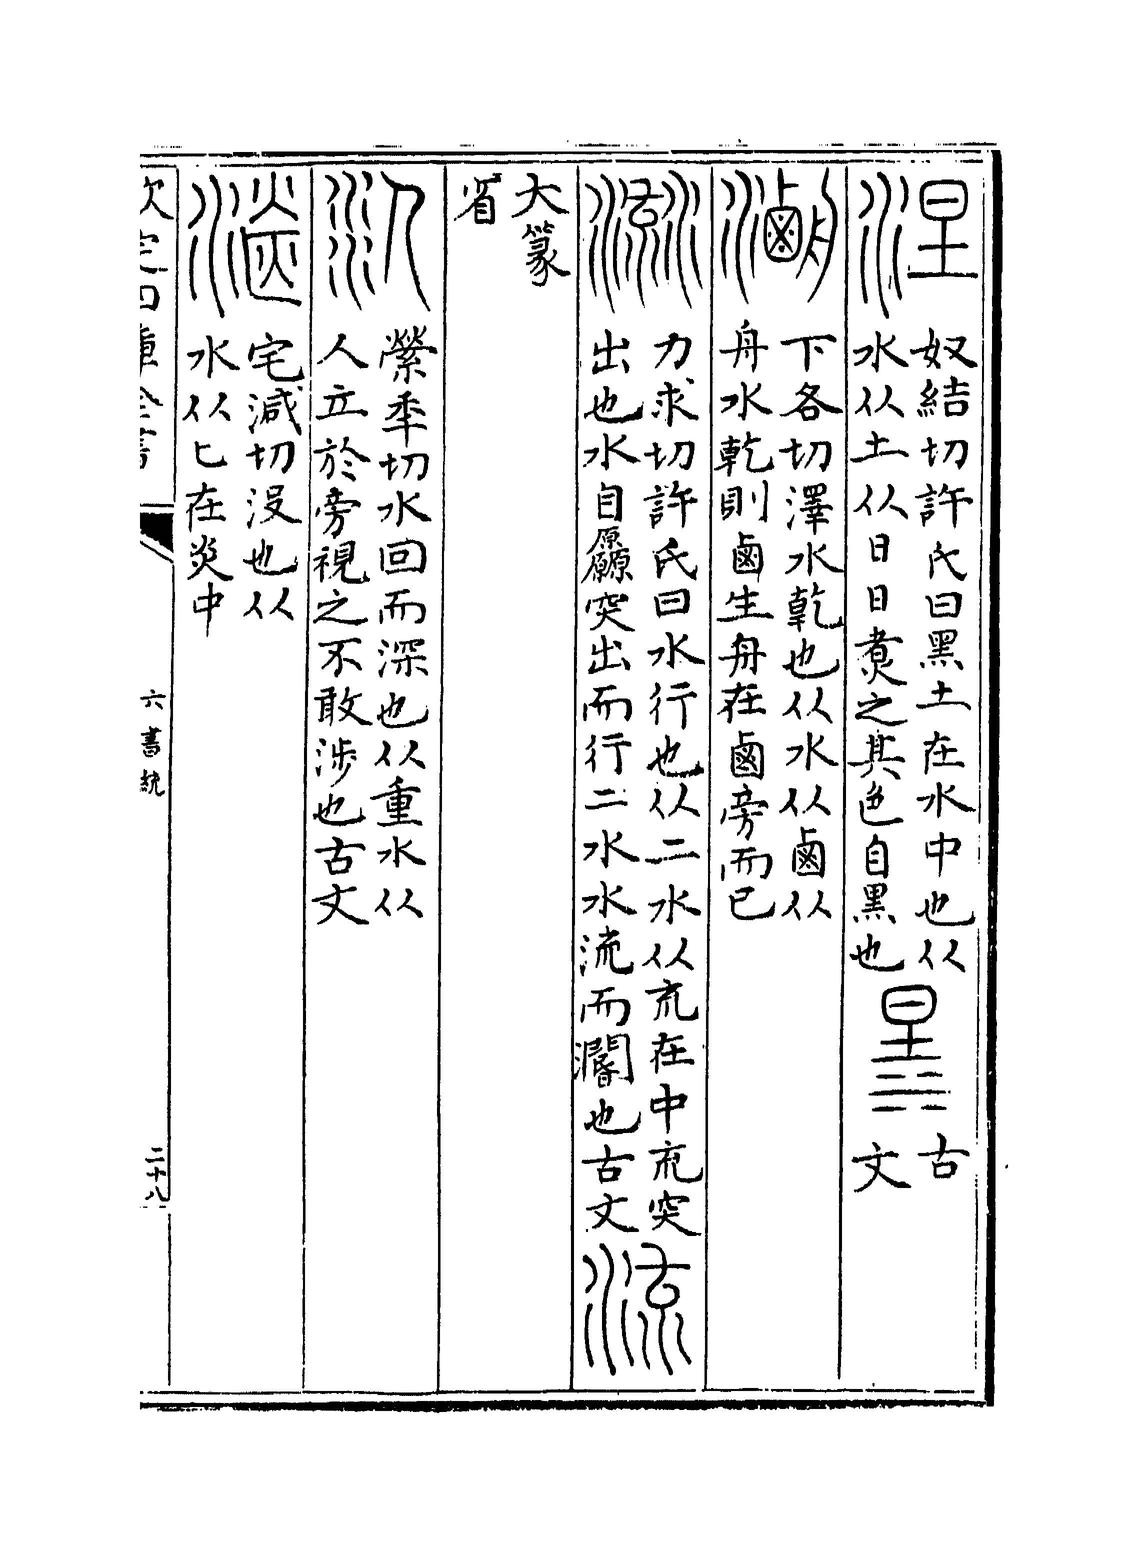 涅
奴結切許氏曰黑土在水中也从
水从土从日日煑之其色自黑也
古
文
下各切澤水乾也从水从鹵从
舟水乾則鹵生舟在鹵旁而已
力求切許氏曰水行也从二水从㐬在中㐬突
出也水自厵突出而行二水水流而濶也古文
流
大篆
省
縈季切水回而深也从重水从
人立於旁視之不敢涉也古文
宅減切沒也从
水从匕在炎中
欽定四庫全書
六書統
二十八